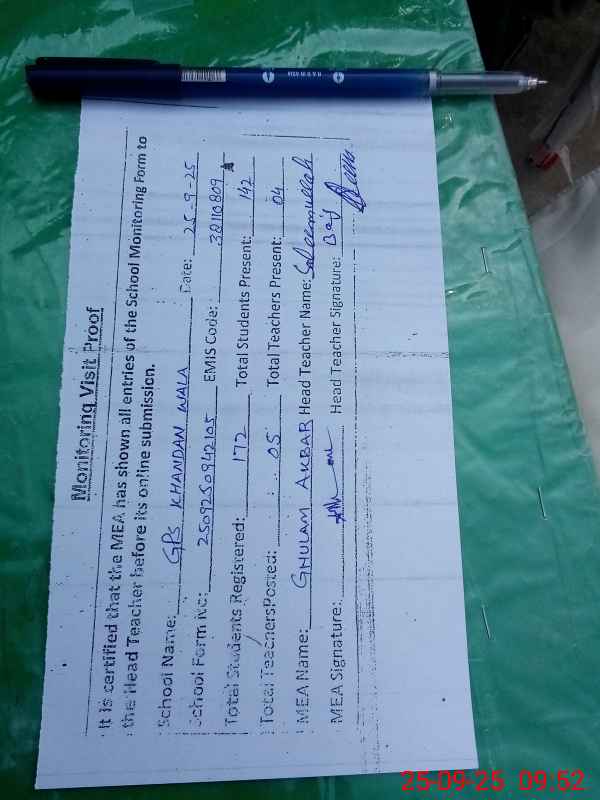 Monitoring Visit Proof
It is certified that the MEA has shown all entries of the School Monitoring Form to
the Head Teacher before its online submission.
School Name: GPS KHANDAN WALA Date: 25-9-25
School Form No: 2509250942105 EMIS Code: 38110809
Total Students Registered: 172 Total Students Present: 142
Total Teachers Posted: 05 Total Teachers Present: 04
MEA Name: GHULAM AKBAR Head Teacher Name: Saleemullah
MEA Signature: Head Teacher Signature:
25-09-25 09:52